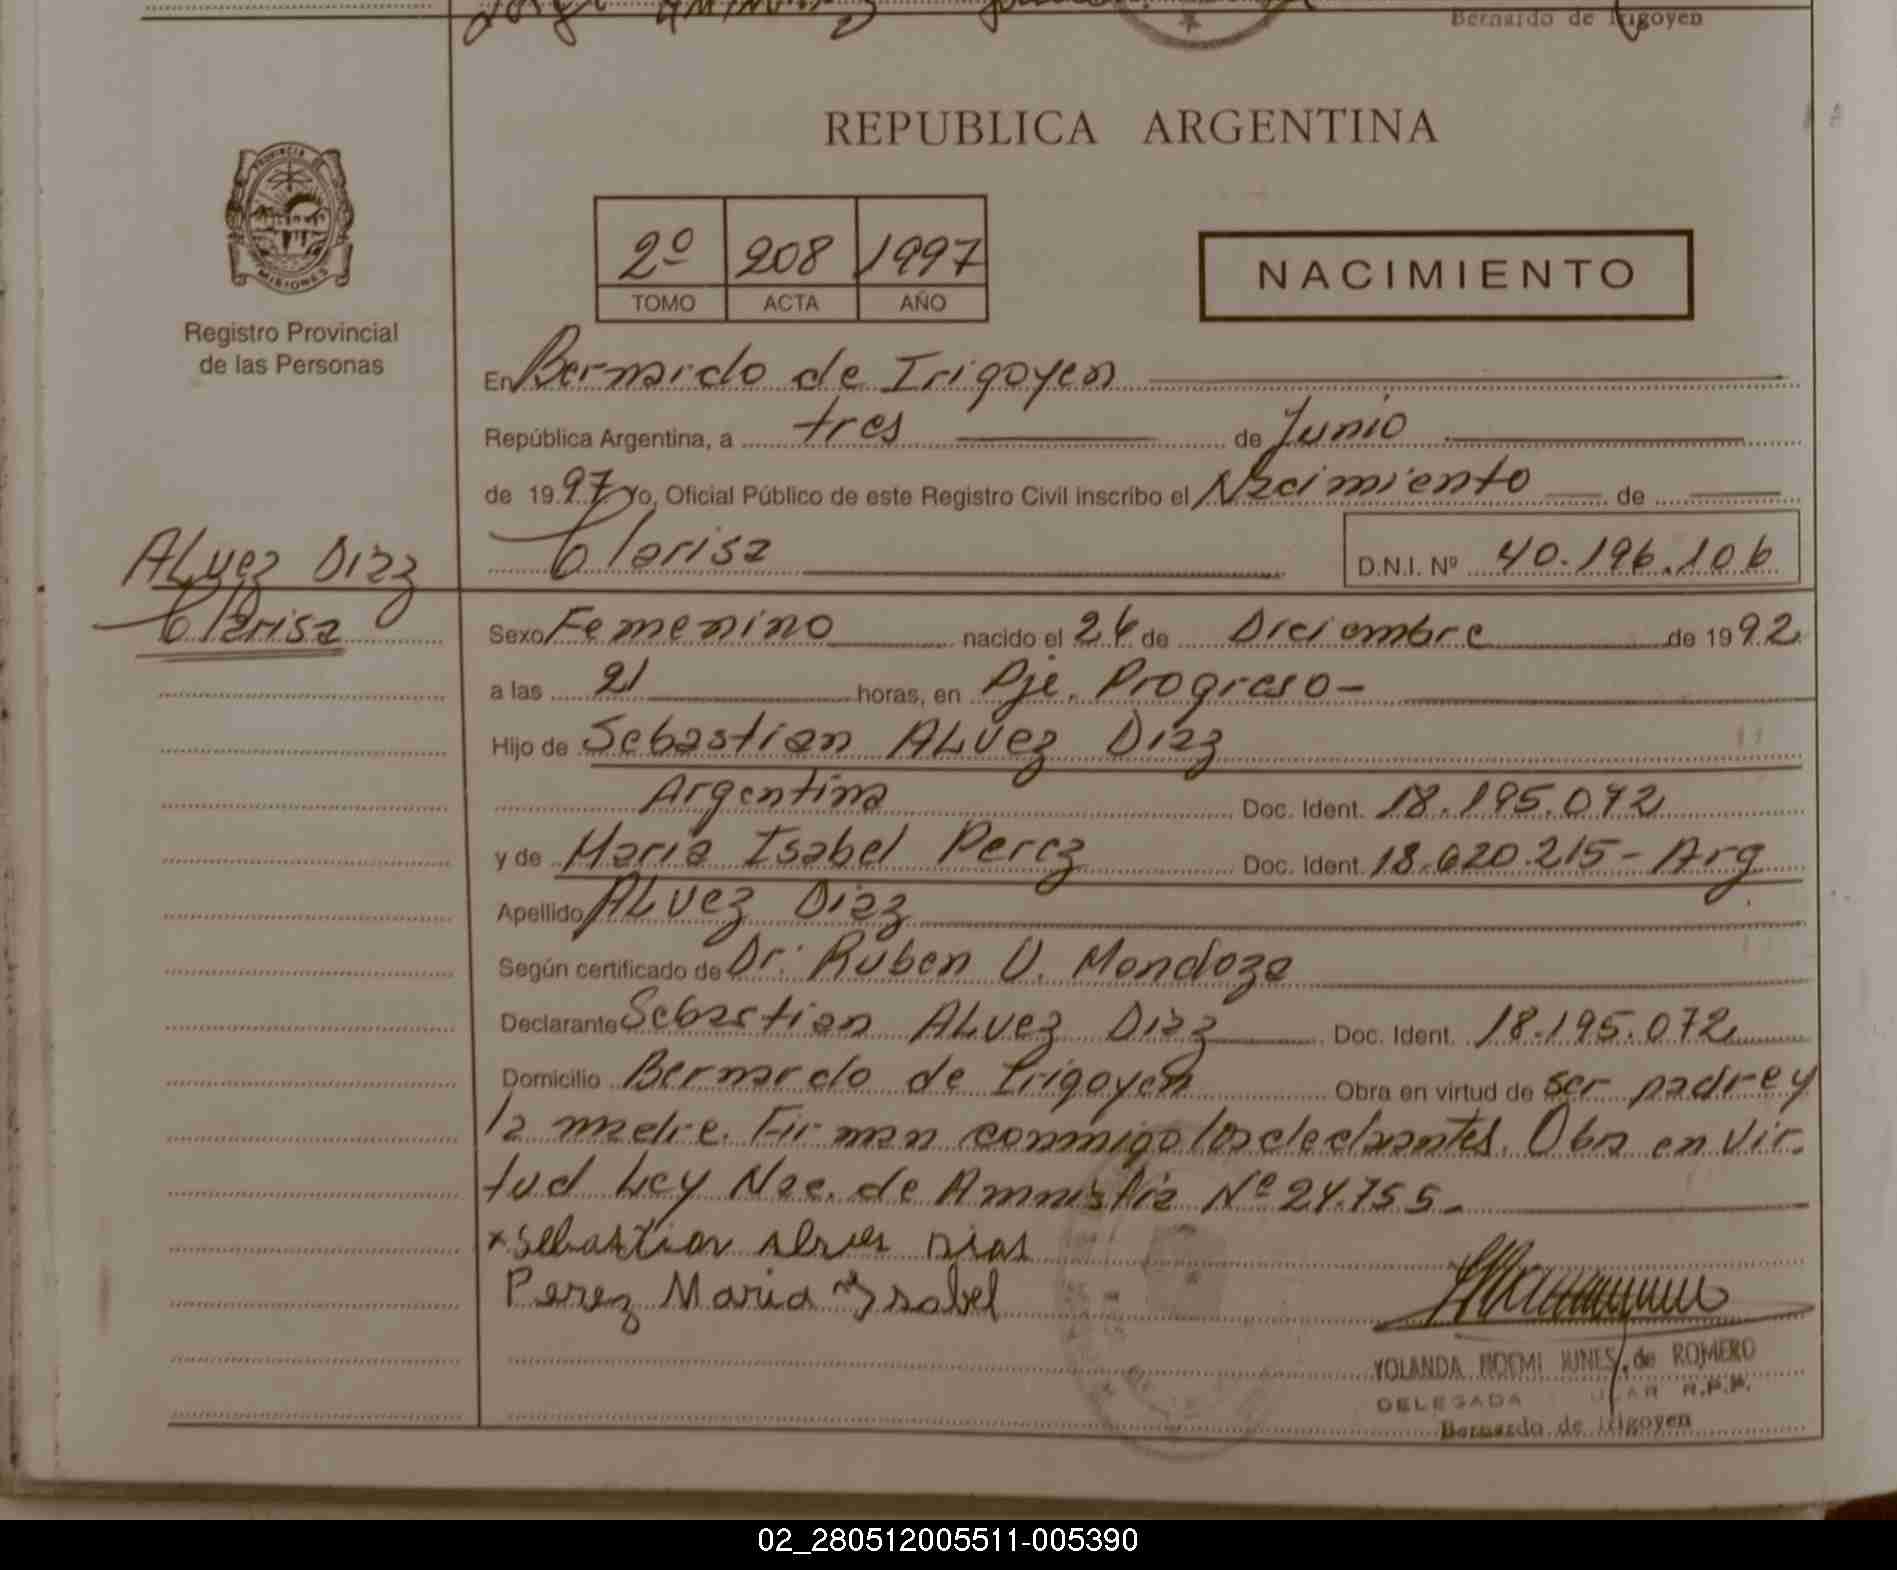 Bernardo de Irigoyen
REPUBLICA ARGENTINA
PROVINCIA DE
MISIONES
Registro Provincial
de las Personas
2º 208 1997
TOMO ACTA AÑO
NACIMIENTO
En Bernardo de Irigoyen
República Argentina, a tres de Junio
de 1997 Yo, Oficial Público de este Registro Civil inscribo el Nacimiento de
Clarisa D.N.I. Nº 40.196.106
ALvez Diaz
Clarisa
Sexo Femenino nacido el 24 de Diciembre de 1992
a las 21 horas, en Pje. Progreso-
Hijo de Sebastian ALvez Diaz
Argentina Doc. Ident. 18.195.072
y de Maria Isabel Perez Doc. Ident. 18.620.215- Arg
Apellido ALvez Diaz
Según certificado de Dr. Ruben O. Mendoza
Declarante Sebastian ALvez Diaz Doc. Ident. 18.195.072
Domicilio Bernardo de Irigoyen Obra en virtud de ser padre y
la madre. Firman conmigo los declarantes. Obra en vir-
tud Ley Nac. de Amnistia Nº 24.755-
x Sebastian alves Dias
Perez Maria Ysabel
YOLANDA NOEMI IUNES de ROMERO
DELEGADA R.P.P.
Bernardo de Irigoyen
02_280512005511-005390